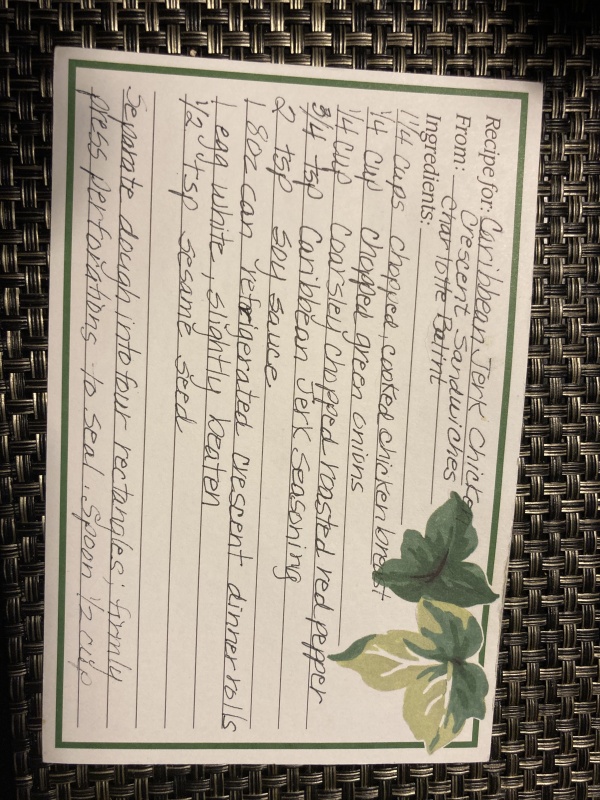 Recipe for: Caribbean Jerk Chicken
Crescent Sandwiches
From: Charlotte Balint
Ingredients:
1 1/4 cups chopped, cooked chicken breast
1/4 cup chopped green onions
1/4 cup coarsley chopped roasted red pepper
3/4 tsp Caribbean Jerk seasoning
2 tsp soy sauce
1 8oz can refrigerated crescent dinner rolls
1 egg white, slightly beaten
1/2 tsp sesame seed
Separate dough into four rectangles; firmly
press perforations to seal. Spoon 1/2 cup